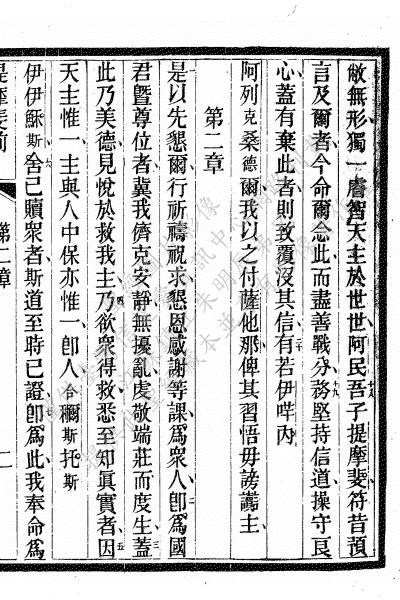 敝無形獨一睿智天主於世世阿民吾子提摩斐符昔預
言及爾者今命爾念此而盡善戰分務堅持信道操守良
心蓋有棄此者則致覆沒其信有若伊哶丙
阿列克桑德爾我以之付薩他那俾其習悟毋謗讟主
第二章
是以先懇爾行祈禱祝求懇恩感謝等課為衆人卽為國
君曁尊位者冀我儕克安靜無擾亂虔敬端莊而度生蓋
此乃美德見悅於救我主乃欲衆得救悉至知眞實者因
天主惟一主與人中保亦惟一卽人合爾斯托斯
伊伊穌斯舍己贖衆者斯道至時已證卽為此我奉命為
提摩斐前
第二章
二